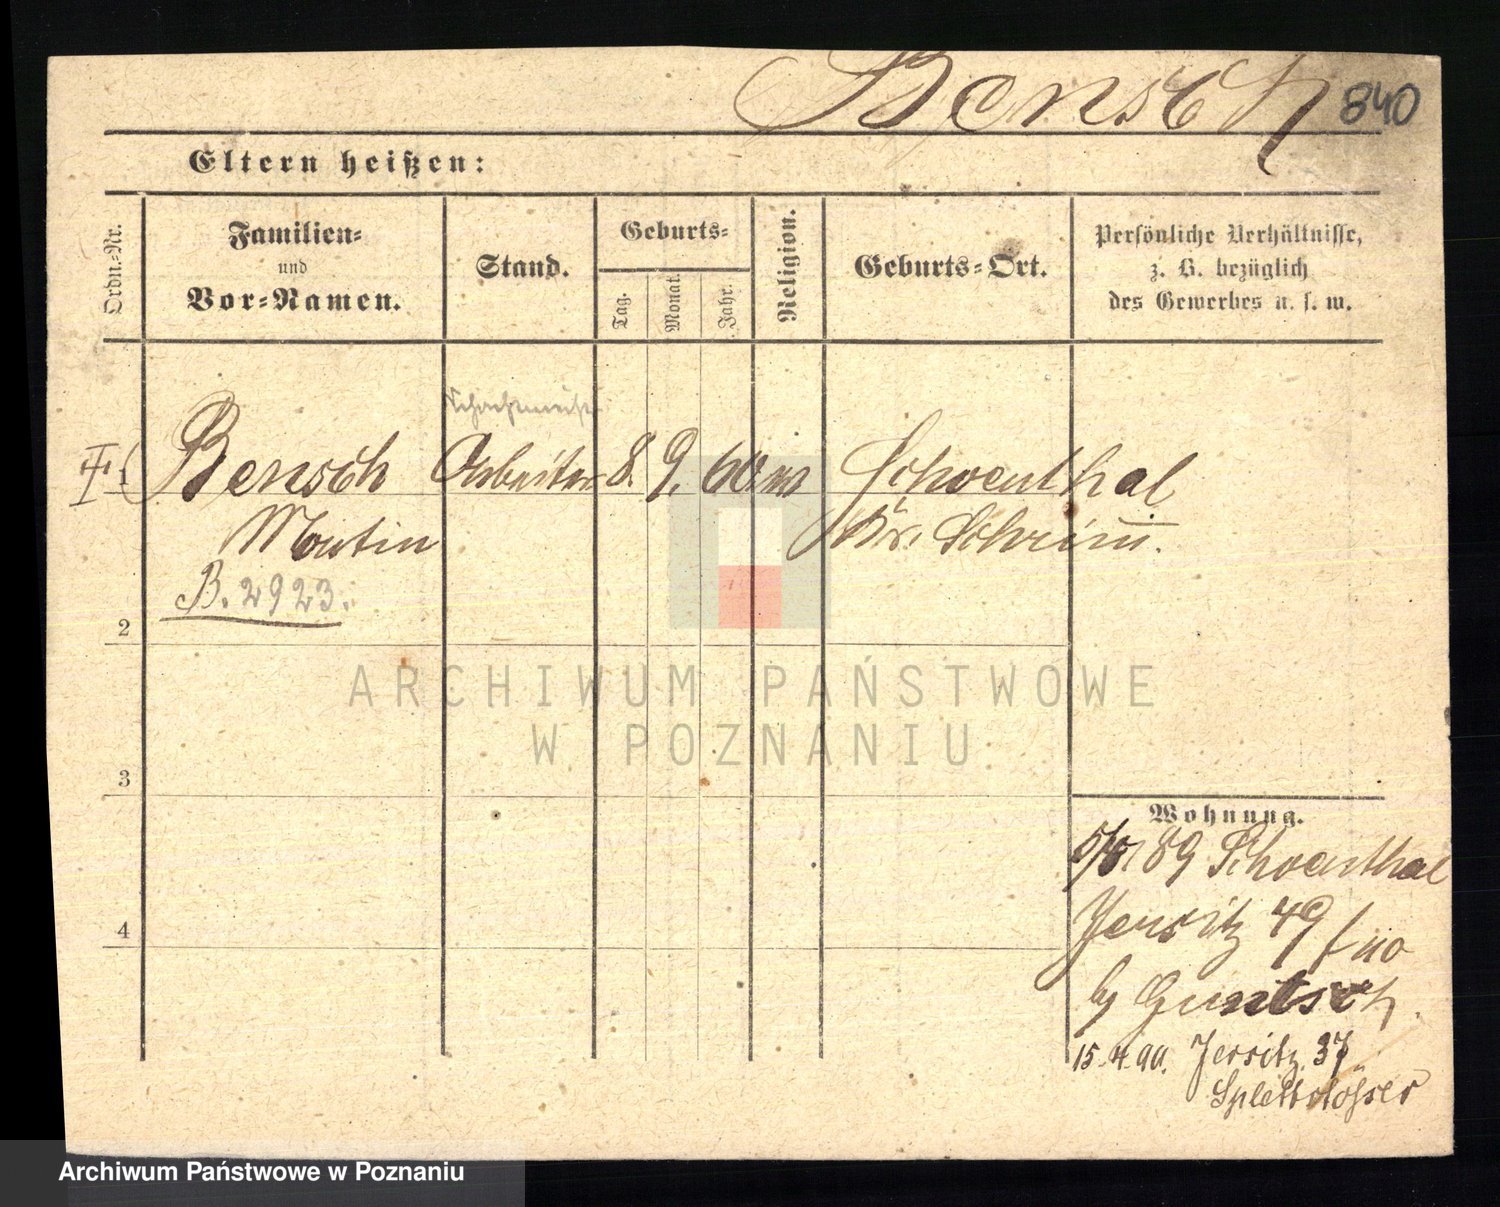 Bensch 840
Eltern heißen:
Ordn.-Nr.
Familien-
und
Vor-Namen.
Stand.
Geburts-
Tag.
Monat.
Jahr.
Religion.
Geburts-Ort.
Persönliche Verhältnisse,
z. B. bezüglich
des Gewerbes u. s. w.
1 Bensch Arbeiter 8. 9. 60 Schoenthal
Martin Kr. Schrimm.
B. 2923.
2
3
4
Wohnung.
89 Schoenthal
Jersitz 49
Guntsch
15.4.90. Jersitz 37
Splettstösser
ARCHIWUM PAŃSTWOWE
W POZNANIU
Archiwum Państwowe w Poznaniu